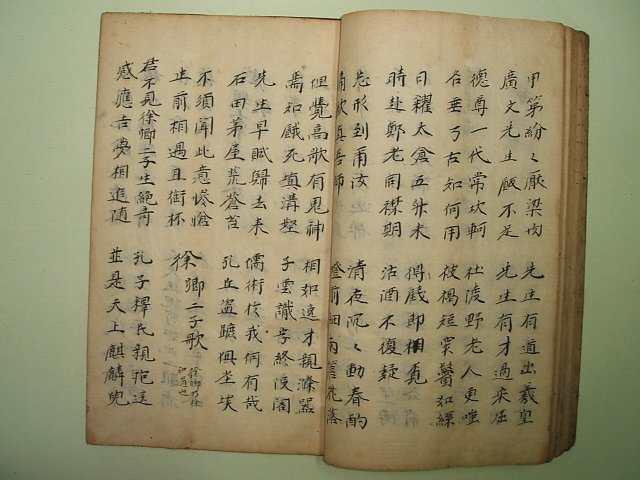 甲第紛〻厭梁肉　先生有道出羲皇
廣文先生飯不足　先生有才過屈
德尊一代常坎軻　杜陵野老人更嗤
名垂万古如何用　被褐短窄鬢如絲
日糴太倉五升米　得錢即相覓
時赴鄭老同襟期　沽酒不復疑
忘形到爾汝　清夜沉〻動春酌
痛飲真吾師　燈前細雨簷花落
但覺高歌有鬼神　相如逸才親滌器
焉知餓死填溝壑　子雲識字終投閣
先生早賦歸去來　儒術於我何有哉
石田茅屋荒蒼苔　孔丘盜蹠俱塵埃
不須聞此意慘愴
生前相遇且銜杯　徐卿二子歌
君不見徐卿二子生絕奇　孔子釋氏親抱送
感應吉夢相追隨　並是天上麒麟兒